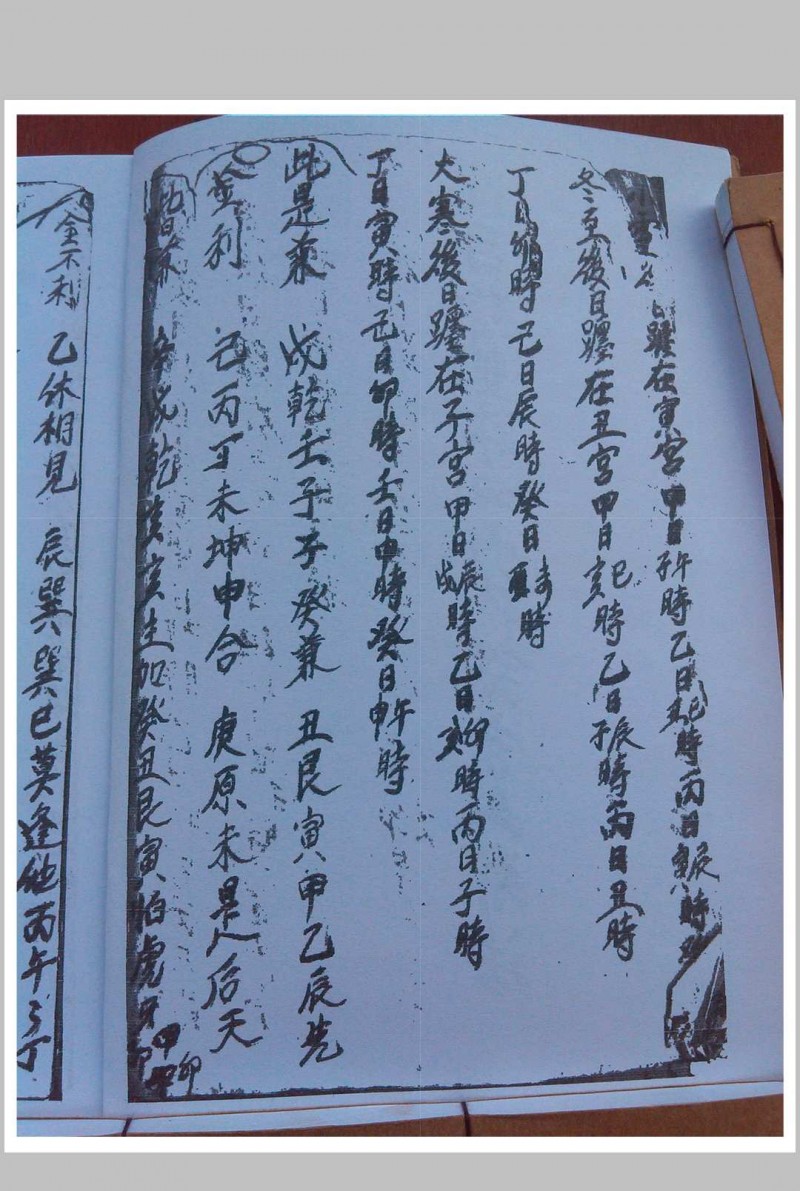 躔在寅宮甲日子午時乙日丑巳時丙日寅辰時
冬至後日躔在丑宮甲日亥巳時乙日子辰時丙日丑時
丁日卯時己日辰時癸日時
大寒後日躔在子宮甲日戌辰時乙日亥卯時丙日子時
丁日寅時己日卯時壬日申時癸日午時
此是兼 戌乾壬子子癸兼 丑艮寅甲乙辰先
金利 己丙丁未坤申合 庚原未是人后天
戌乾亥亥生加癸丑艮寅怕虎
甲卯
金不利 乙休相見 辰巽巽巳莫逢他丙午丁